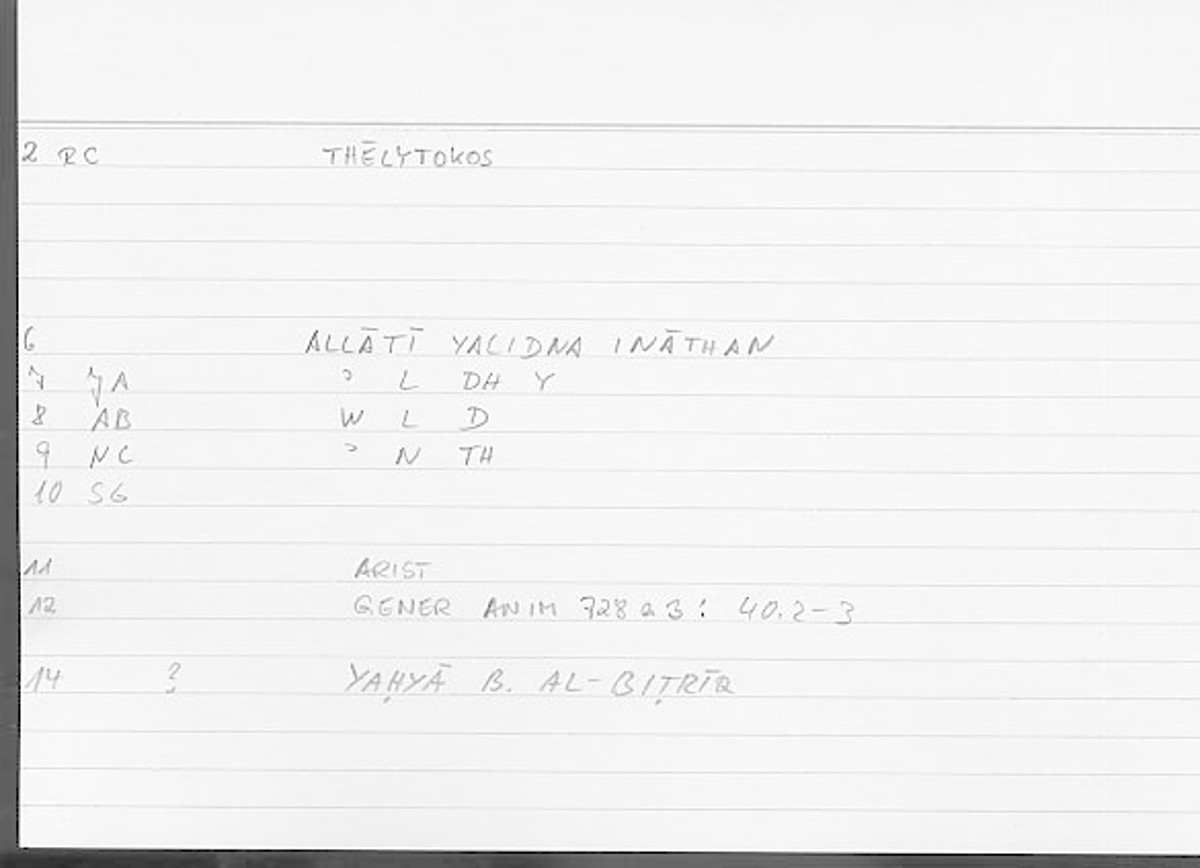 2 RC THĒLYTOKOS
6 ALLĀTĪ YALIDNA INĀTHAN
7 JA ʾ L DH Y
8 AB W L D
9 NC ʾ N TH
10 SG
11 ARIST
12 GENER ANIM 728 a 3 : 40.2-3
14 ? YAḤYĀ B. AL-BIṬRĪQ